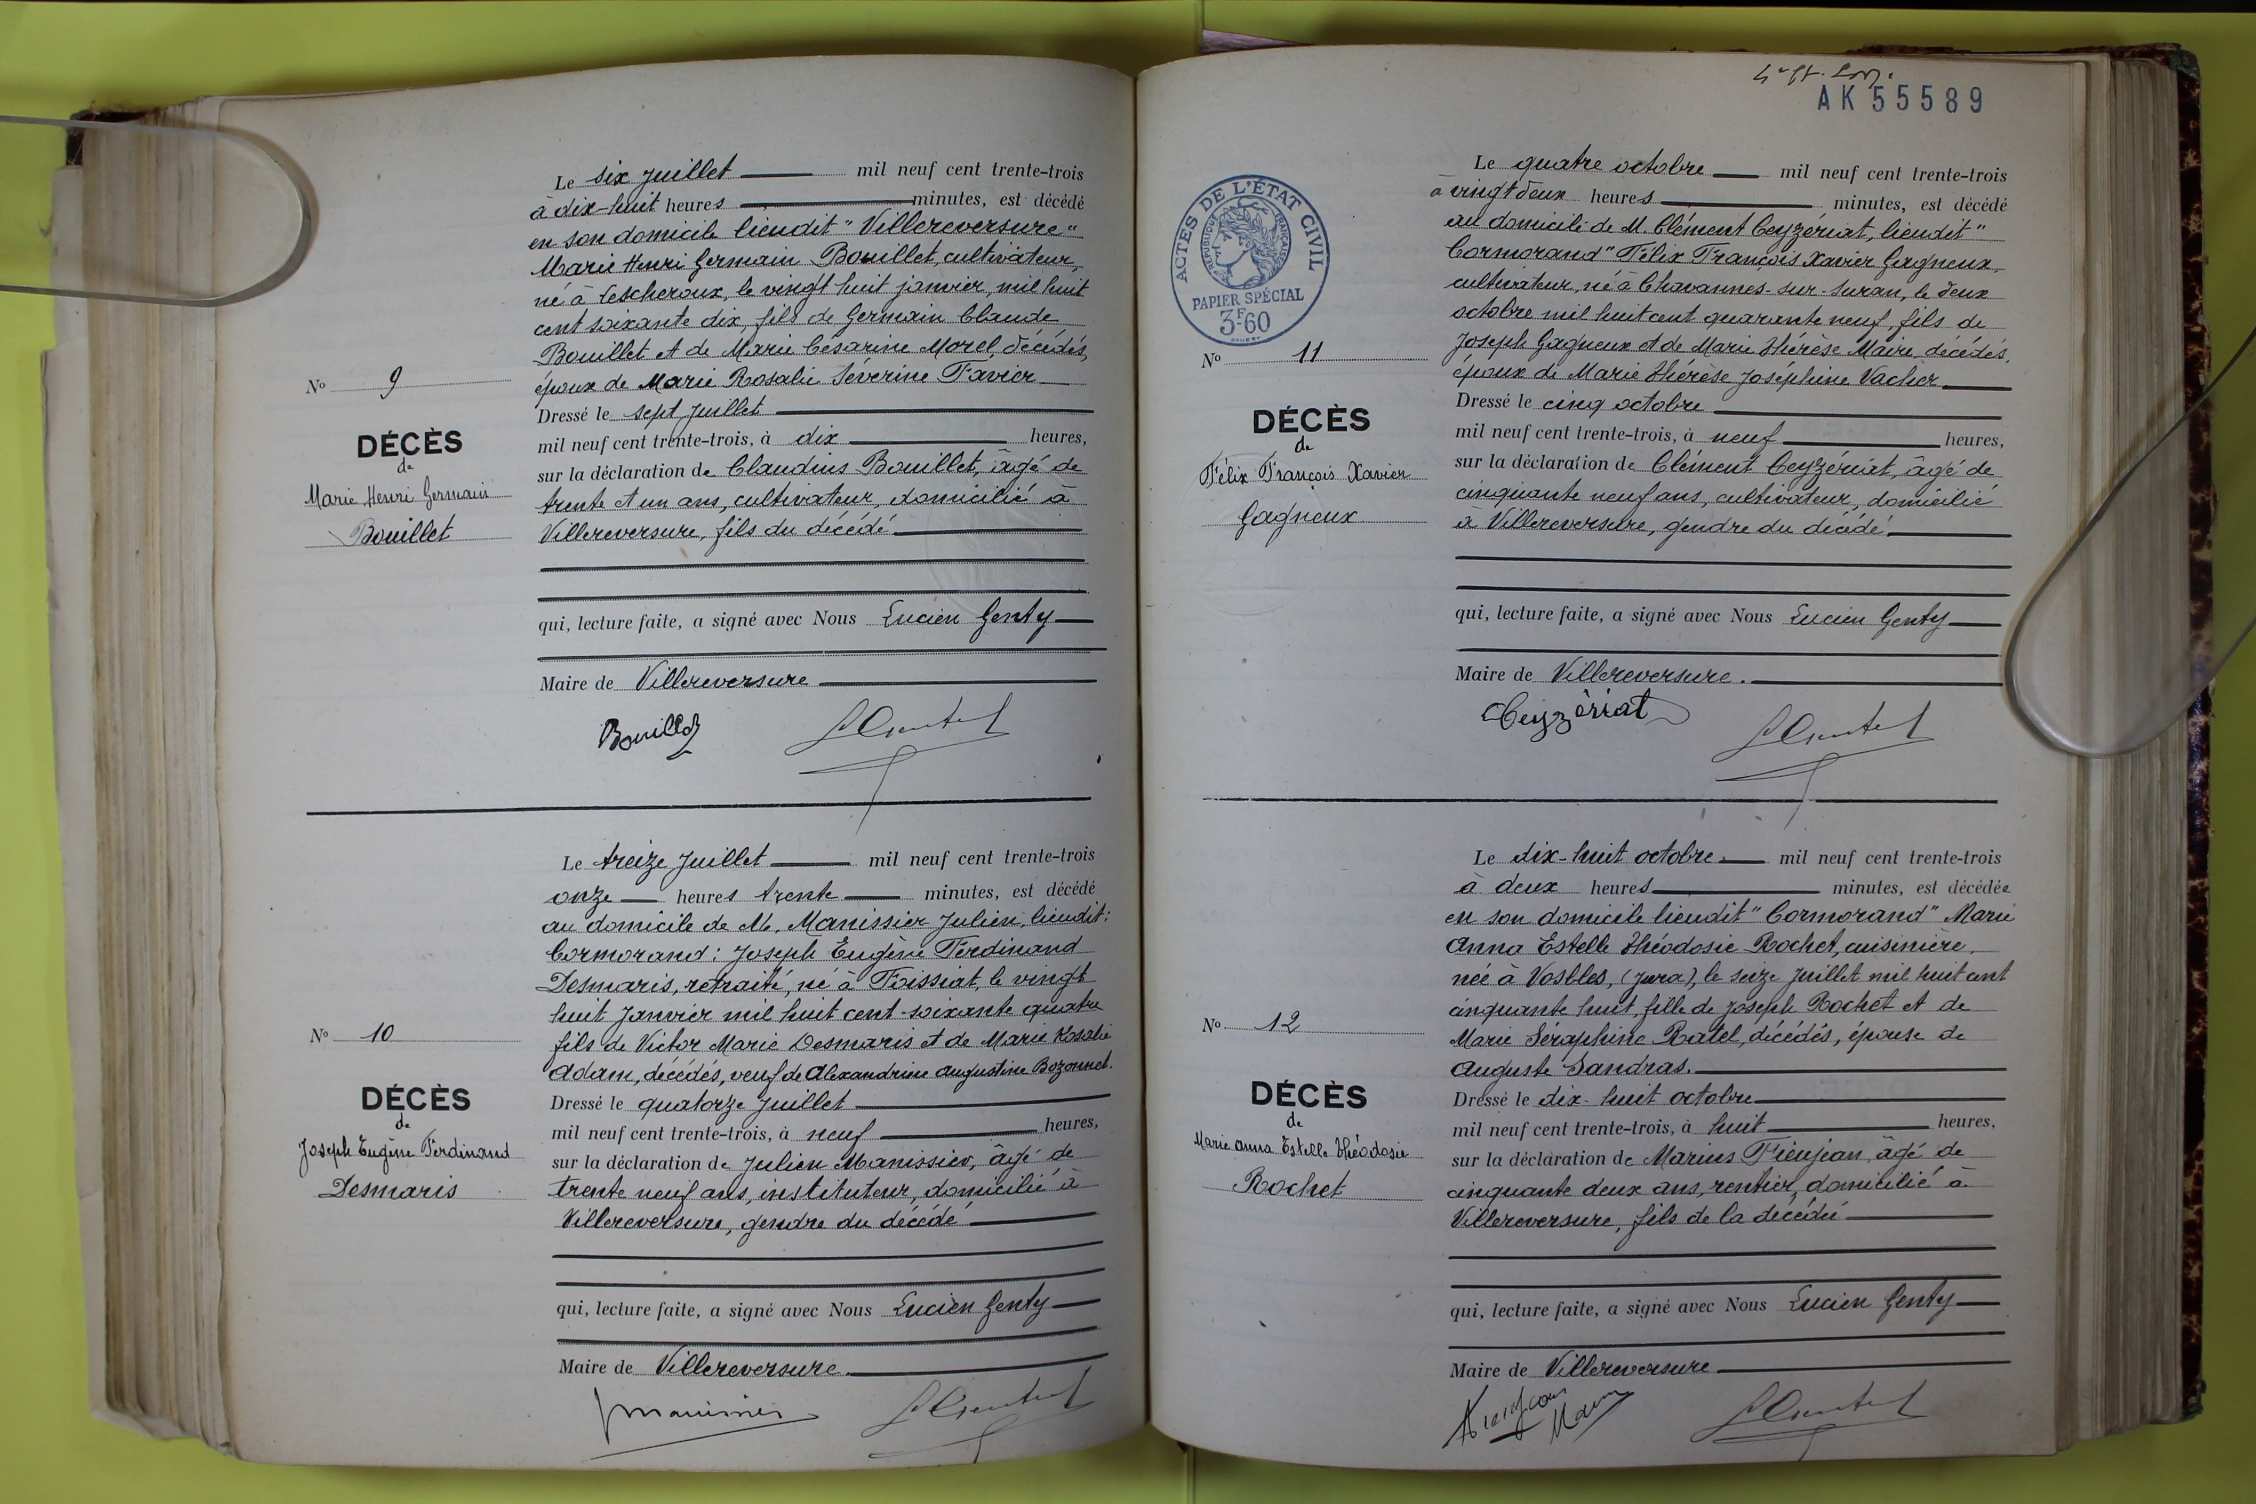 Le six juillet mil neuf cent trente-trois
à dix-huit heures minutes, est décédé
en son domicile lieudit "Villereversure"
Marie Henri Germain Bouillet, cultivateur,
né à Lescheroux, le vingt huit janvier, mil huit
cent soixante dix, fils de Germain Claude
Bouillet et de Marie Césarine Morel, décédés,
époux de Marie Rosalie Séverine Favier
Dressé le sept juillet
mil neuf cent trente-trois, à dix heures,
sur la déclaration de Claudius Bouillet, âgé de
trente et un ans, cultivateur, domicilié à
Villereversure, fils du décédé
qui, lecture faite, a signé avec Nous Lucien Genty
Maire de Villereversure
N° 9
DÉCÈS
de
Marie Henri Germain
Bouillet
Bouillet
Le treize juillet mil neuf cent trente-trois
onze heures trente minutes, est décédé
au domicile de M. Manissier Julien, lieudit:
Cormorand: Joseph Eugène Ferdinand
Desmaris, retraité, né à Foissiat, le vingt
huit Janvier mil huit cent soixante quatre
fils de Victor Marie Desmaris et de Marie Rosalie
Adam, décédés, veuf de Alexandrine Augustine Bozonnet.
Dressé le quatorze juillet
mil neuf cent trente-trois, à neuf heures,
sur la déclaration de Julien Manissier, âgé de
trente neuf ans, instituteur, domicilié à
Villereversure, gendre du décédé
qui, lecture faite, a signé avec Nous Lucien Genty
Maire de Villereversure.
N° 10
DÉCÈS
de
Joseph Eugène Ferdinand
Desmaris
Jmanissier
AK 55589
ACTES DE L'ÉTAT CIVIL
RÉPUBLIQUE FRANÇAISE
PAPIER SPÉCIAL
3F60
Le quatre octobre mil neuf cent trente-trois
à vingt deux heures minutes, est décédé
au domicile de M. Clément Ceyzériat, lieudit "
Cormorand" Félix François Xavier Gagneux,
cultivateur, né à Chavannes-sur-Suran, le deux
octobre mil huit cent quarante neuf, fils de
Joseph Gagneux et de Marie Thérèse Maire, décédés,
époux de Marie Thérèse Joséphine Vacher
Dressé le cinq octobre
mil neuf cent trente-trois, à neuf heures,
sur la déclaration de Clément Ceyzériat, âgé de
cinquante neuf ans, cultivateur, domicilié
à Villereversure, gendre du décédé
qui, lecture faite, a signé avec Nous Lucien Genty
Maire de Villereversure.
N° 11
DÉCÈS
de
Félix François Xavier
Gagneux
Ceyzériat
Le dix-huit octobre mil neuf cent trente-trois
à deux heures minutes, est décédée
en son domicile lieudit "Cormorand" Marie
Anna Estelle Théodosie Rochet, cuisinière,
née à Vosbles, (Jura), le seize juillet mil huit cent
cinquante huit, fille de Joseph Rochet et de
Marie Séraphine Ratel, décédés, épouse de
Auguste Sandras.
Dressé le dix-huit octobre
mil neuf cent trente-trois, à huit heures,
sur la déclaration de Marius Fieujean, âgé de
cinquante deux ans, rentier, domicilié à
Villereversure, fils de la décédée
qui, lecture faite, a signé avec Nous Lucien Genty
Maire de Villereversure
N° 12
DÉCÈS
de
Marie Anna Estelle Théodosie
Rochet